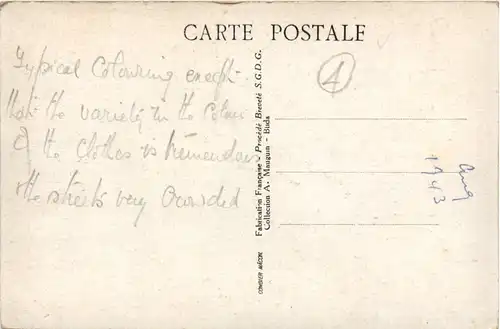 CARTE POSTALE
Typical Colouring except
that the variety in the Colour
of the clothes is tremendous
& the streets very crowded
4
Fabrication Française - Procédé Breveté S.G.D.G.
Collection A. Mauguin - Blida
COMBIER MÂCON
Aug
1943